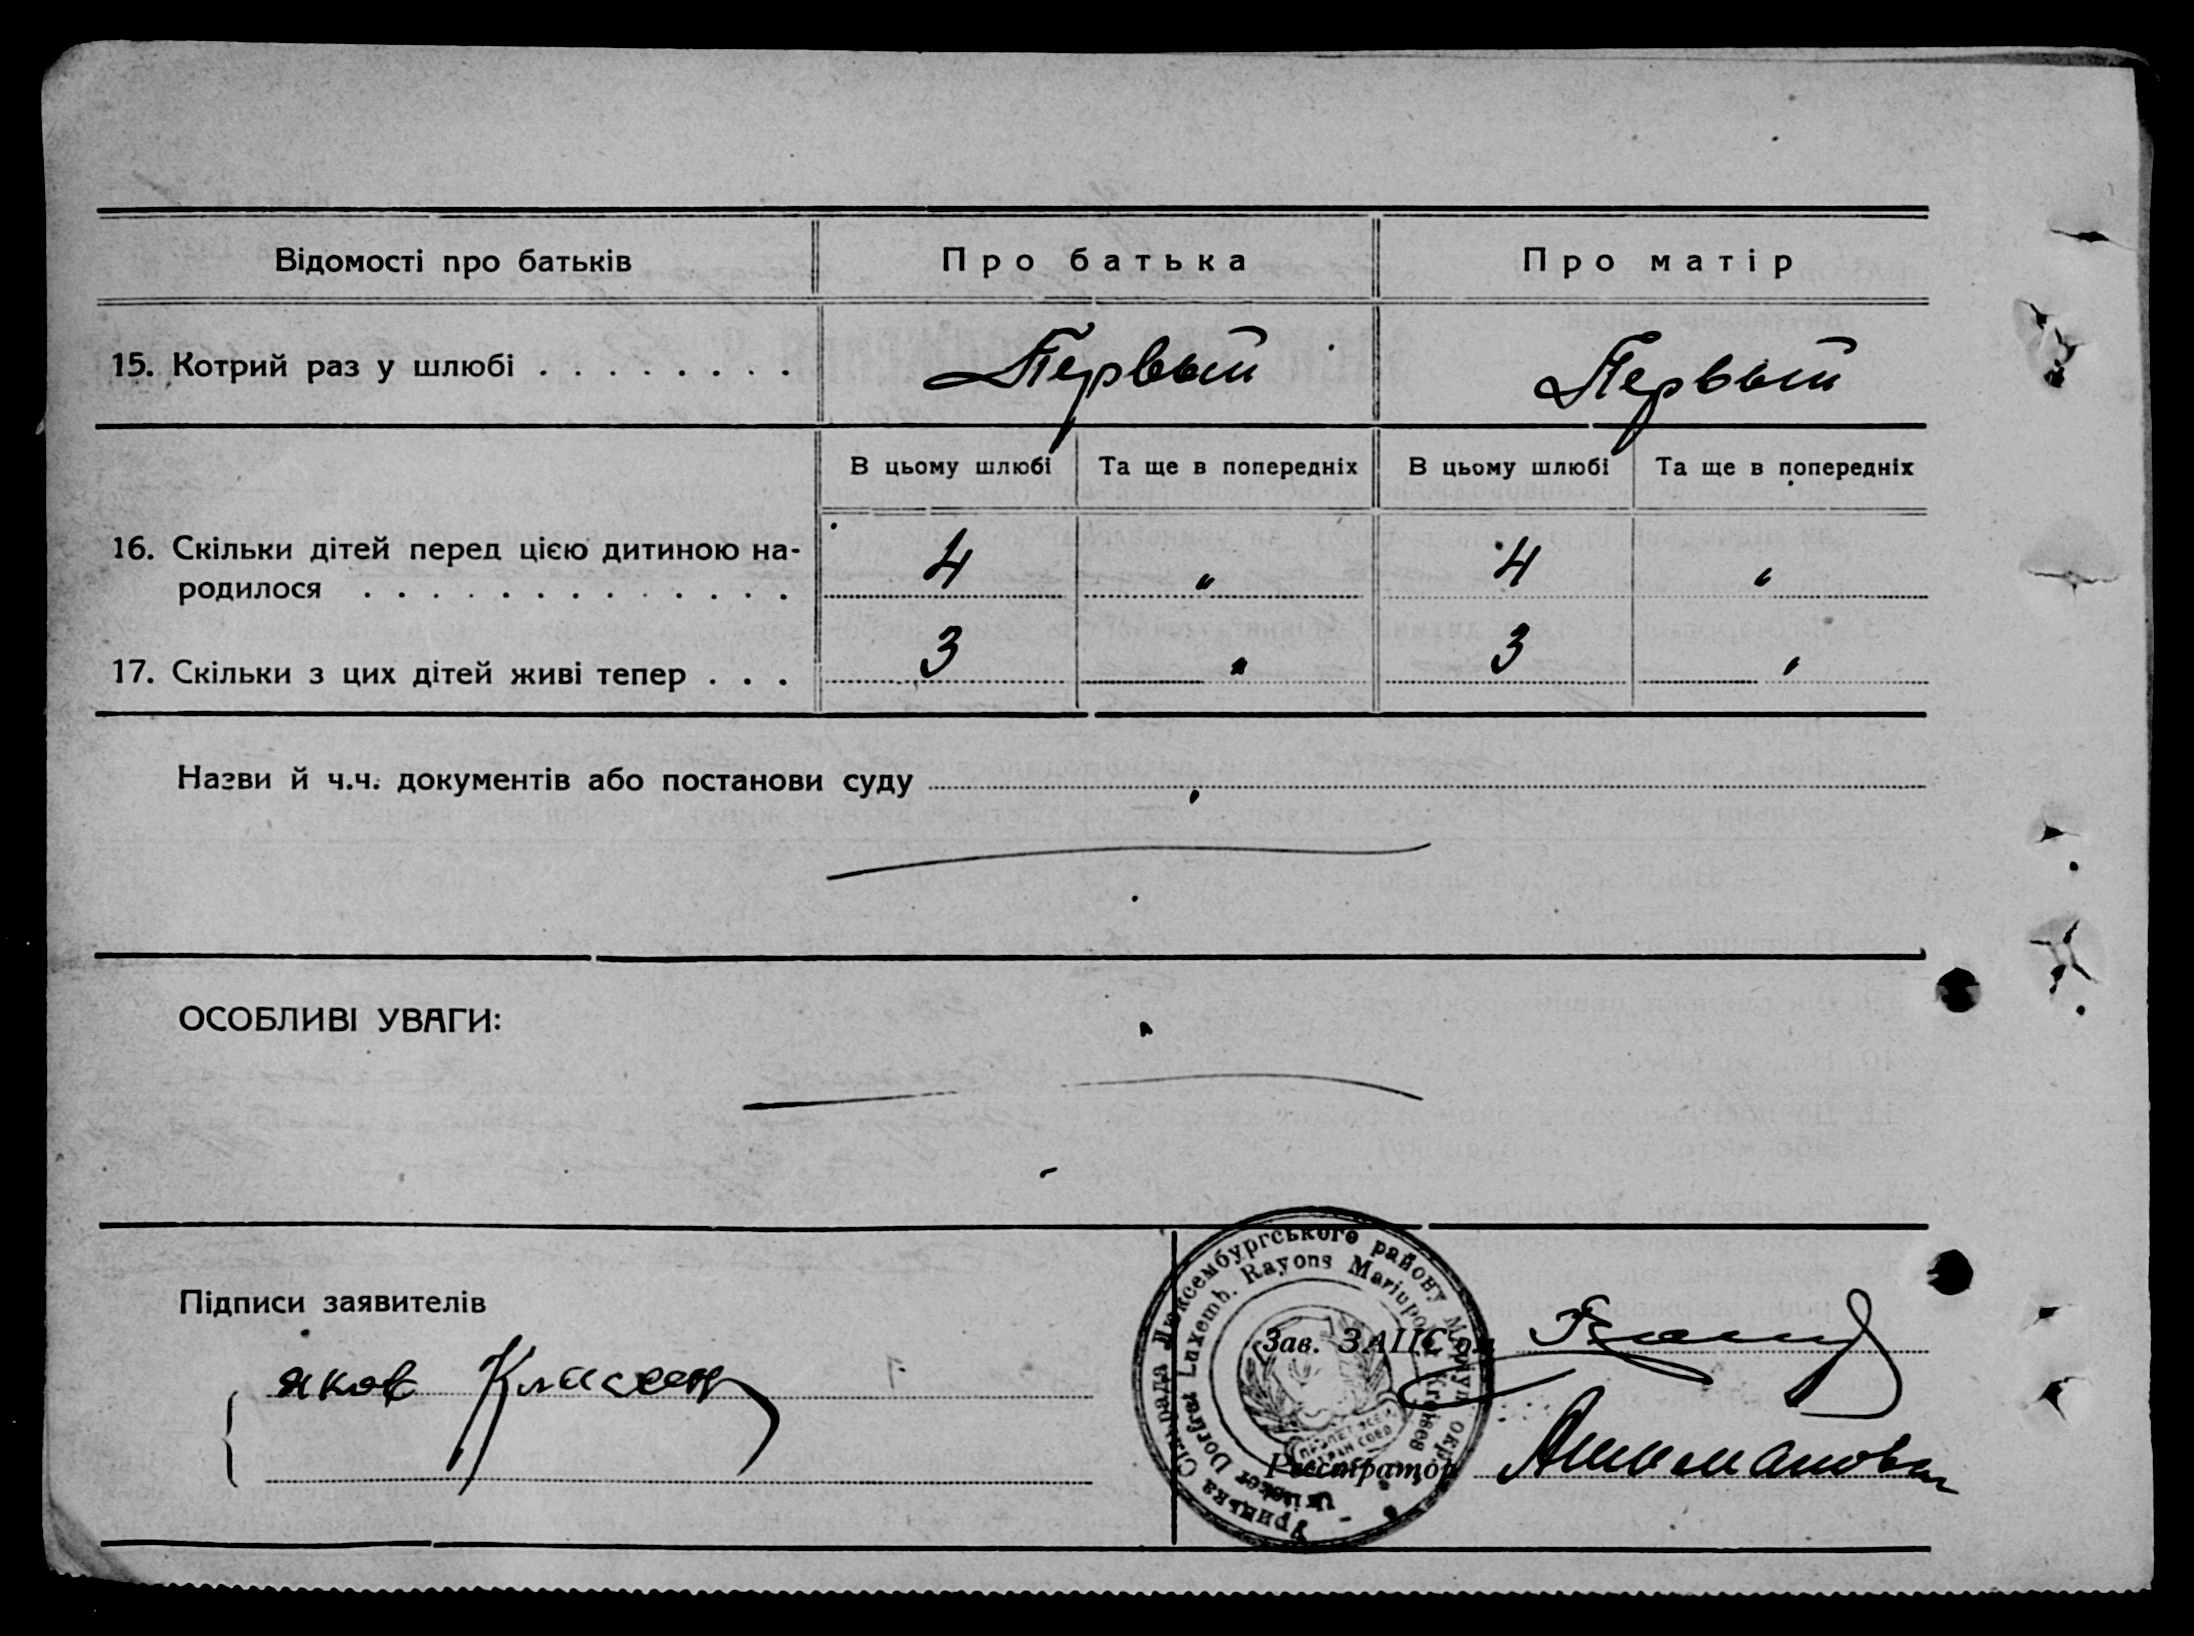 Відомості про батьків
Про батька
Про матір
15. Котрий раз у шлюбі . . . . . . . .
Первый
Первый
В цьому шлюбі
Та ще в попередніх
В цьому шлюбі
Та ще в попередніх
16. Скільки дітей перед цією дитиною на-
родилося . . . . . . . . . . . . .
4
"
4
"
17. Скільки з цих дітей живі тепер . . .
3
"
3
"
Назви й ч.ч. документів або постанови суду
ОСОБЛИВІ УВАГИ:
Підписи заявителів
Яков
Зав. ЗАЦС'ом
Реєстратор
Урицька Сільрада Люксембургського району Маріуп. окр.
Uritzker Dorfrat Luxemb. Rayons Mariupoler Kreises